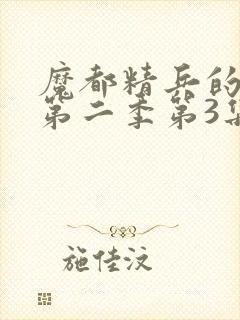 魔都精兵的
第二季第3集
施佳汶